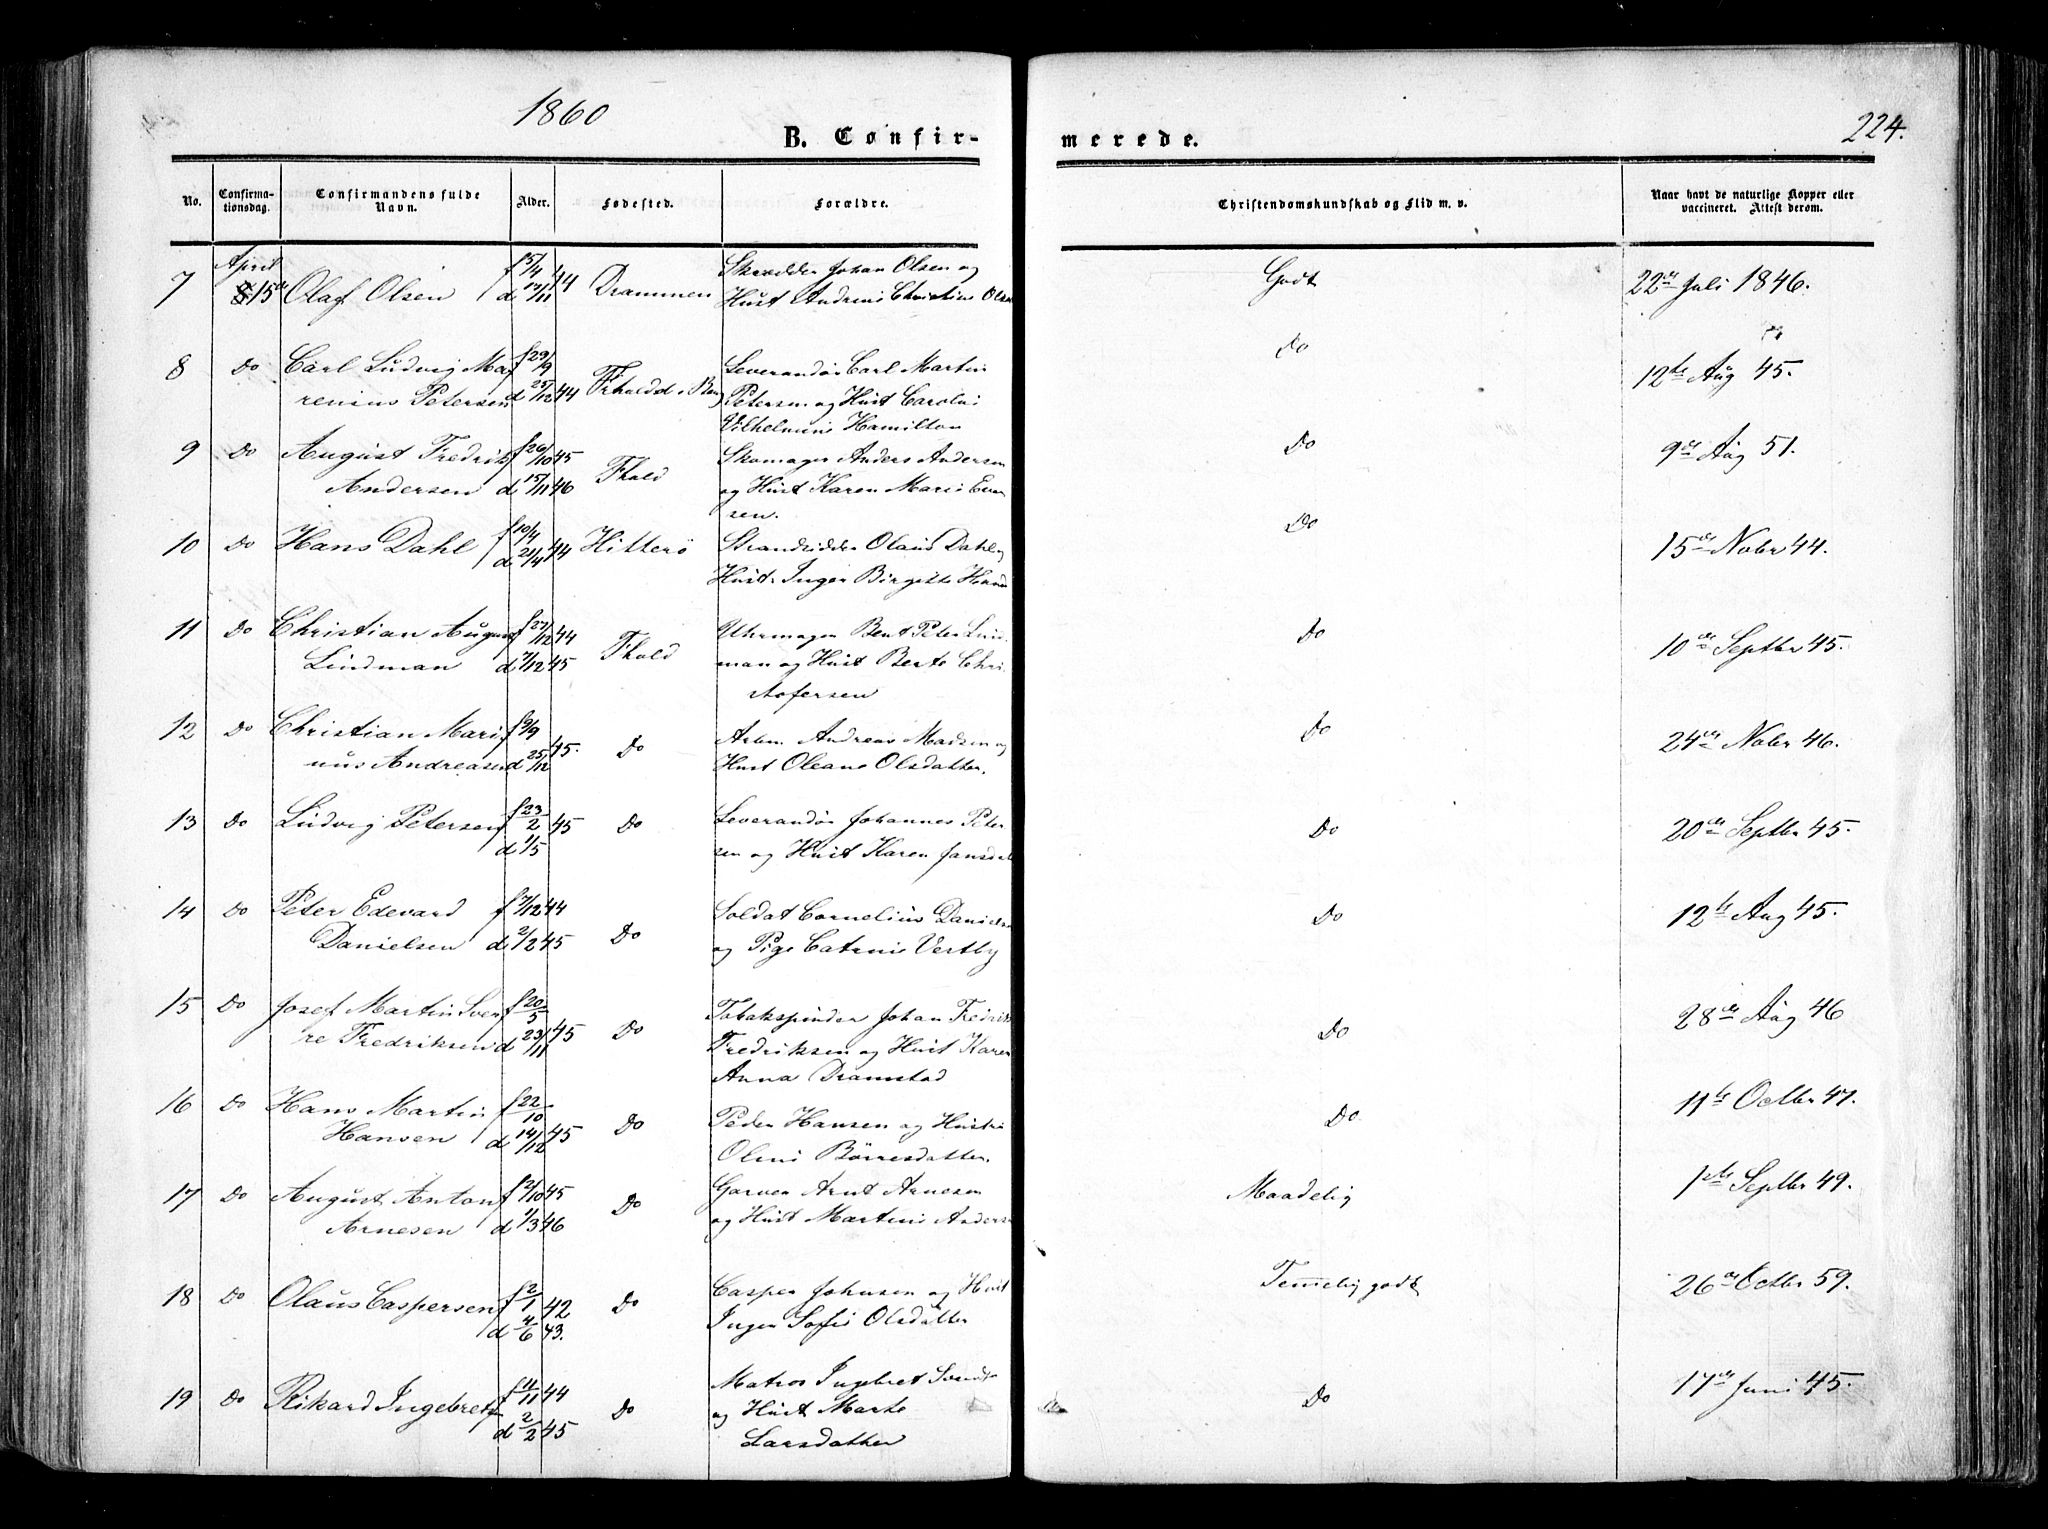 1860
B. Confir-
merede.
224.
No.
Confirma-
tionsdag.
Confirmandens fulde
Navn.
Alder.
Fødested.
Forældre.
Christendomskundskab og Flid m. v.
Naar havt de naturlige Kopper eller
vaccineret. Attest derom.
April
7 15de Olaf Olsen f 15/4 d 17/11 44 Drammen Skrædder Johan Olsen og
Hust Andrine Christine Olsen
Godt 22de Juli 1846.
8 Do Carl Ludvig Ma f 29/9
renius Petersen d 25/12 44 Leverandør Carl Martin
Petersen og Hust Caroline
Vilhelmine Hamilton
Do 12te Aug 45.
9 Do August Fredrik f 26/10 45
Andersen d 15/11 46 Fhald Skomager Anders Andersen
og Hust Karen Marie
sen.
Do 9de Aug 51.
10 Do Hans Dahl f 10/4 d 21/4 44 Hitterö Strandridder Olaus Dahl og
Hust. Inger Birgitte
Do 15de Novbr 44.
11 Do Christian August f 27/12 44
Lindman d 7/12 45 Fhald Uhrmager Bent Peter Lind
man og Hust Berte Chri
stofersen
Do 10de Septbr 45.
12 Do Christian Mari f 9/9
nus Andreasen d 25/12 45. Do Arbm. Andreas Madsen og
Hust Oleane Olsdatter.
Do 24de Novbr 46.
13 Do Ludvig Petersen f 23/2 45 Do
d 1/5 Leverandør Johannes Peter
sen og Hust Karen Jansdat
Do 20de Septbr 45.
14 Do Peter Edevard f 7/12 44
Danielsen d 2/2 45 Do Soldat Cornelius Daniels
og Pige Catrine Vestby
Do 12te Aug 45.
15 Do Josef Martin Sver f 20/5
re Fredriksen d 23/11 45 Do Tobakspinder Johan Fredrik
Fredriksen og Hust Karen
Anna Dramstad
Do 28de Aug 46
16 Do Hans Martin f 22/10
Hansen d 14/12 45 Do Peder Hansen og Hustru
Oline Börresdatter.
Do 11te Octbr 47.
17 Do August Anton f 2/10 45
Arnesen d 1/3 46 Do Garver Arnt Arnesen
og Hust Martine Anders
Maadelig 1ste Septbr 49.
18 Do Olaus Caspersen f 2/1 42
d 4/6 43. Do Casper Johnsen og Hust
Inger Sofie Olsdatter
Temelig godt 26de Octbr 59.
19 Do Rikard Ingebrets f 11/11 44
d 2/2 45 Do Matros Ingebret Svends
og Hust Marte
Larsdatter
Do 17de Juni 45.